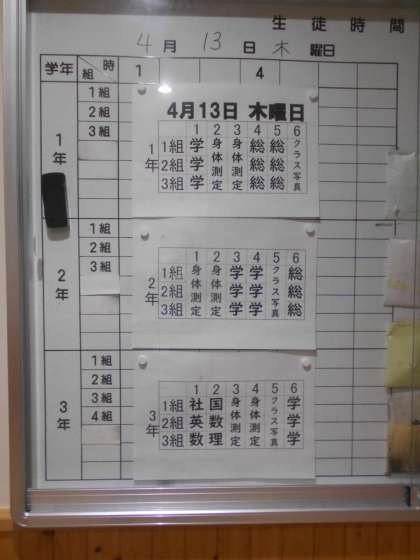 生徒時間
4月13日木曜日
学年 組 時 1 4
1年
1組
2組
3組
4月13日 木曜日
1 2 3 4 5 6
1年
1組 学 身体測定 身体測定 総 総 クラス写真
2組 学 総 総
3組 学 総 総
2年
1組
2組
3組
1 2 3 4 5 6
2年
1組 身体測定 身体測定 学 学 クラス写真 総
2組 学 学 総
3組 学 学 総
3年
1組
2組
3組
4組
1 2 3 4 5 6
3年
1組 社 国 身体測定 身体測定 クラス写真 学
2組 英 数 学
3組 数 理 学